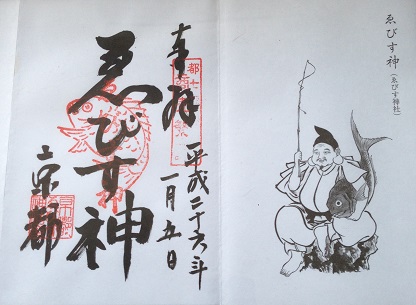 ゑびす神(ゑびす神社)
奉拝
平成二十六年
一月五日
ゑびす神
京都